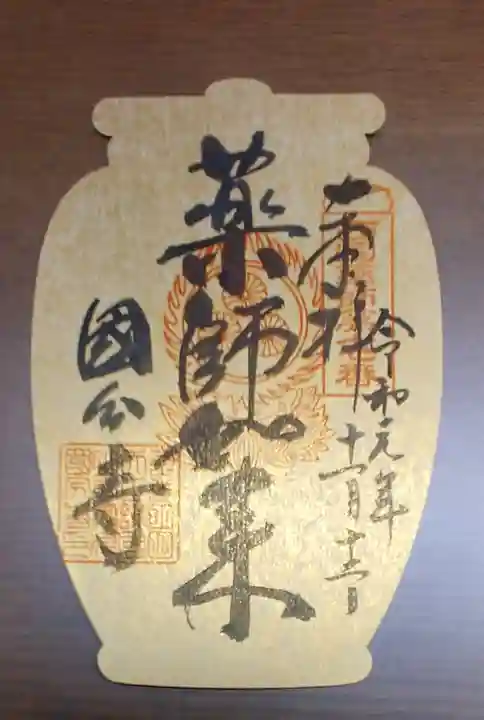 奉拝
令和元年
十一月十三日
薬師如来
國分寺